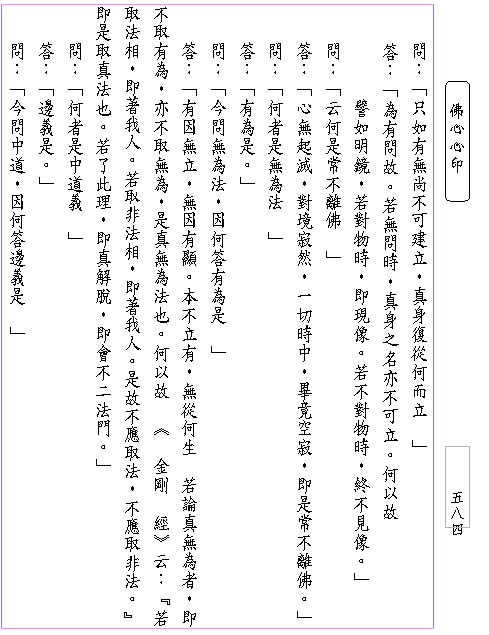 佛心心印
五八四
問：「只如有無尚不可建立，真身復從何而立　」
答：「為有問故。若無問時，真身之名亦不可立。何以故
譬如明鏡，若對物時，即現像。若不對物時，終不見像。」
問：「云何是常不離佛　」
答：「心無起滅，對境寂然，一切時中，畢竟空寂，即是常不離佛。」
問：「何者是無為法　」
答：「有為是。」
問：「今問無為法，因何答有為是　」
答：「有因無立，無因有顯。本不立有，無從何生　若論真無為者，即
不取有為，亦不取無為，是真無為法也。何以故　《　金剛　經》云：『若
取法相，即著我人。若取非法相，即著我人。是故不應取法，不應取非法。』
即是取真法也。若了此理，即真解脫，即會不二法門。」
問：「何者是中道義　」
答：「邊義是。」
問：「今問中道，因何答邊義是　」